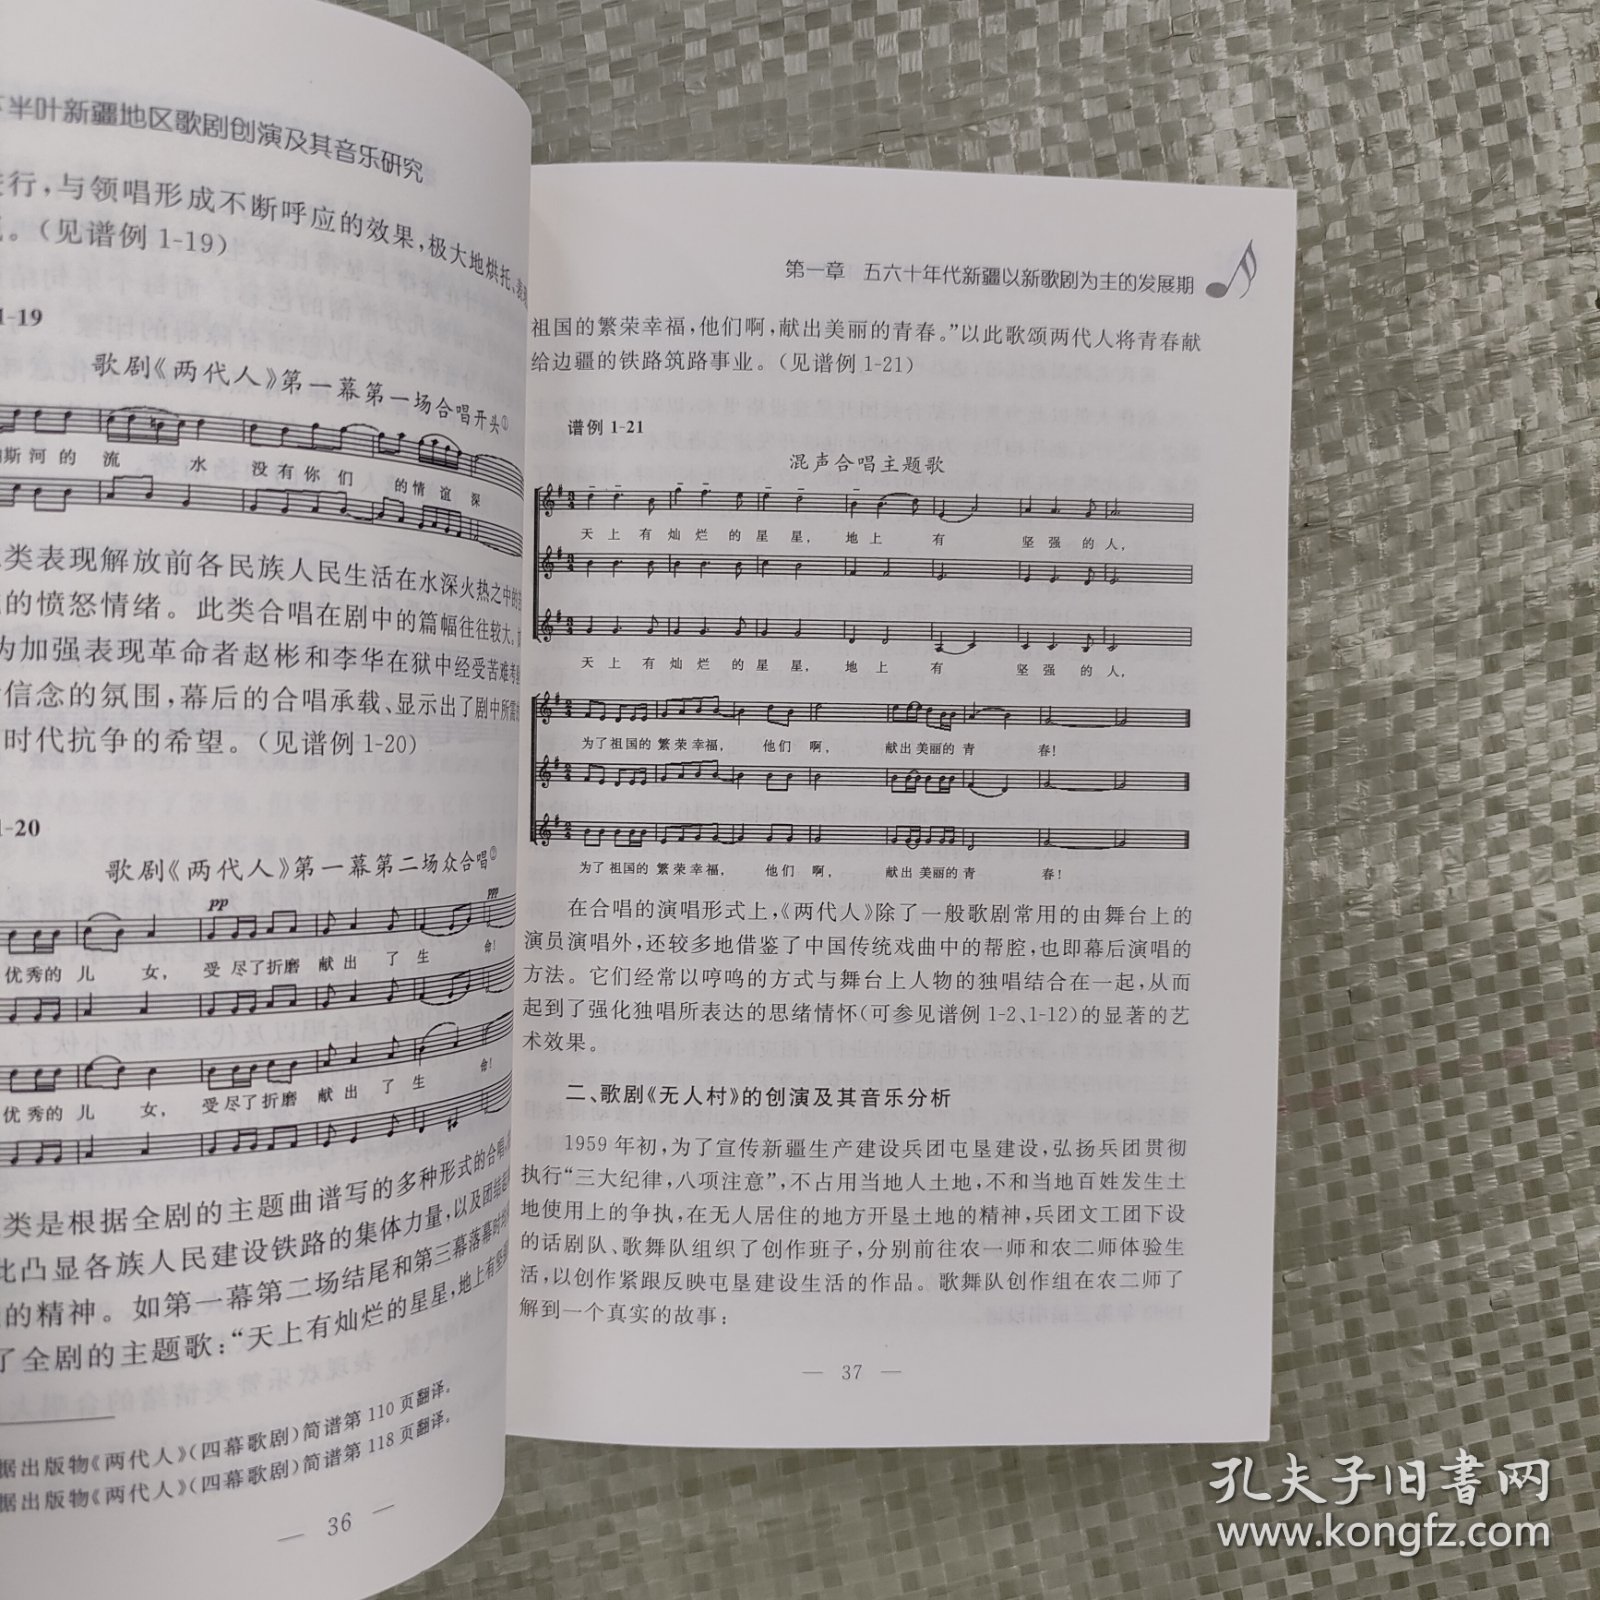 半叶新疆地区歌剧创演及其音乐研究
行，与领唱形成不断呼应的效果，极大地烘托、表
。（见谱例 1-19）
1-19
歌剧《两代人》第一幕第一场合唱开头①
斯河的 流 水 没有你们 的情谊深
类表现解放前各民族人民生活在水深火热之中的
的愤怒情绪。此类合唱在剧中的篇幅往往较大。
为加强表现革命者赵彬和李华在狱中经受苦难考
信念的氛围，幕后的合唱承载、显示出了剧中所需
时代抗争的希望。（见谱例 1-20）
1-20
歌剧《两代人》第一幕第二场众合唱②
pp ppp
优秀的 儿 女， 受尽了折磨 献出 了生 命！
优秀的 儿 女， 受尽了折磨 献出 了生 命！
类是根据全剧的主题曲谱写的多种形式的合唱，
此凸显各族人民建设铁路的集体力量，以及团结
的精神。如第一幕第二场结尾和第三幕落幕时
了全剧的主题歌：“天上有灿烂的星星，地上有坚
据出版物《两代人》（四幕歌剧）简谱第 110 页翻译。
据出版物《两代人》（四幕歌剧）简谱第 118 页翻译。
— 36 —
第一章 五六十年代新疆以新歌剧为主的发展期
祖国的繁荣幸福，他们啊，献出美丽的青春。”以此歌颂两代人将青春献
给边疆的铁路筑路事业。（见谱例 1-21）
谱例 1-21
混声合唱主题歌
天上有灿烂的星星， 地上 有 坚强的人，
天上有灿烂的星星， 地上 有 坚强的人，
为了祖国的繁荣幸福， 他们 啊， 献出美丽的青 春！
为了祖国的繁荣幸福， 他们 啊， 献出美丽的青 春！
在合唱的演唱形式上，《两代人》除了一般歌剧常用的由舞台上的
演员演唱外，还较多地借鉴了中国传统戏曲中的帮腔，也即幕后演唱的
方法。它们经常以哼鸣的方式与舞台上人物的独唱结合在一起，从而
起到了强化独唱所表达的思绪情怀（可参见谱例 1-2、1-12）的显著的艺
术效果。
二、歌剧《无人村》的创演及其音乐分析
1959 年初，为了宣传新疆生产建设兵团屯垦建设，弘扬兵团贯彻
执行“三大纪律，八项注意”，不占用当地人土地，不和当地百姓发生土
地使用上的争执，在无人居住的地方开垦土地的精神，兵团文工团下设
的话剧队、歌舞队组织了创作班子，分别前往农一师和农二师体验生
活，以创作紧跟反映屯垦建设生活的作品。歌舞队创作组在农二师了
解到一个真实的故事：
— 37 —
孔夫子旧书网
www.kongfz.com